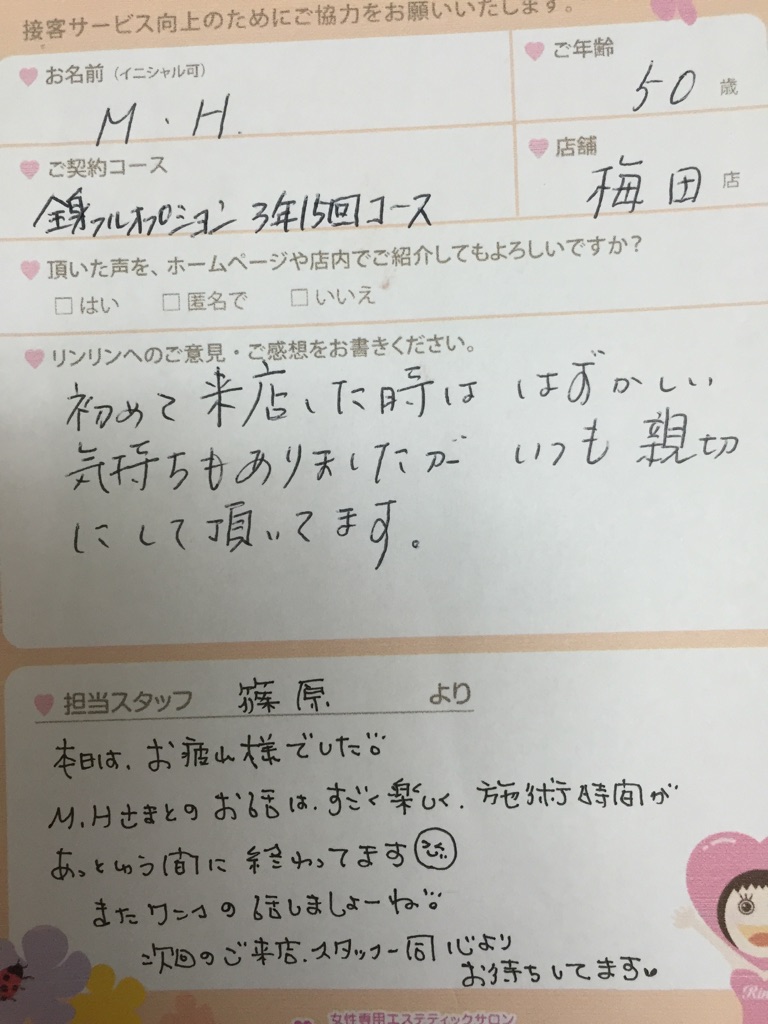 接客サービス向上のためにご協力をお願いいたします。
お名前(イニシャル可)
M.H.
ご年齢
50歳
ご契約コース
全身フルオプション 3年15回コース
店舗
梅田店
頂いた声を、ホームページや店内でご紹介してもよろしいですか?
□はい □匿名で □いいえ
リンリンへのご意見・ご感想をお書きください。
初めて来店した時は はずかしい
気持ちもありましたが いつも親切
にして頂いてます。
担当スタッフ 篠原 より
本日は、お疲れ様でした
M.Hさまとのお話は、すごく楽しく、施術時間が
あっという間に終わってます
またワンコの話しましょーね
次回のご来店、スタッフ一同心より
お待ちしてます
Rin
女性専用エステティックサロン